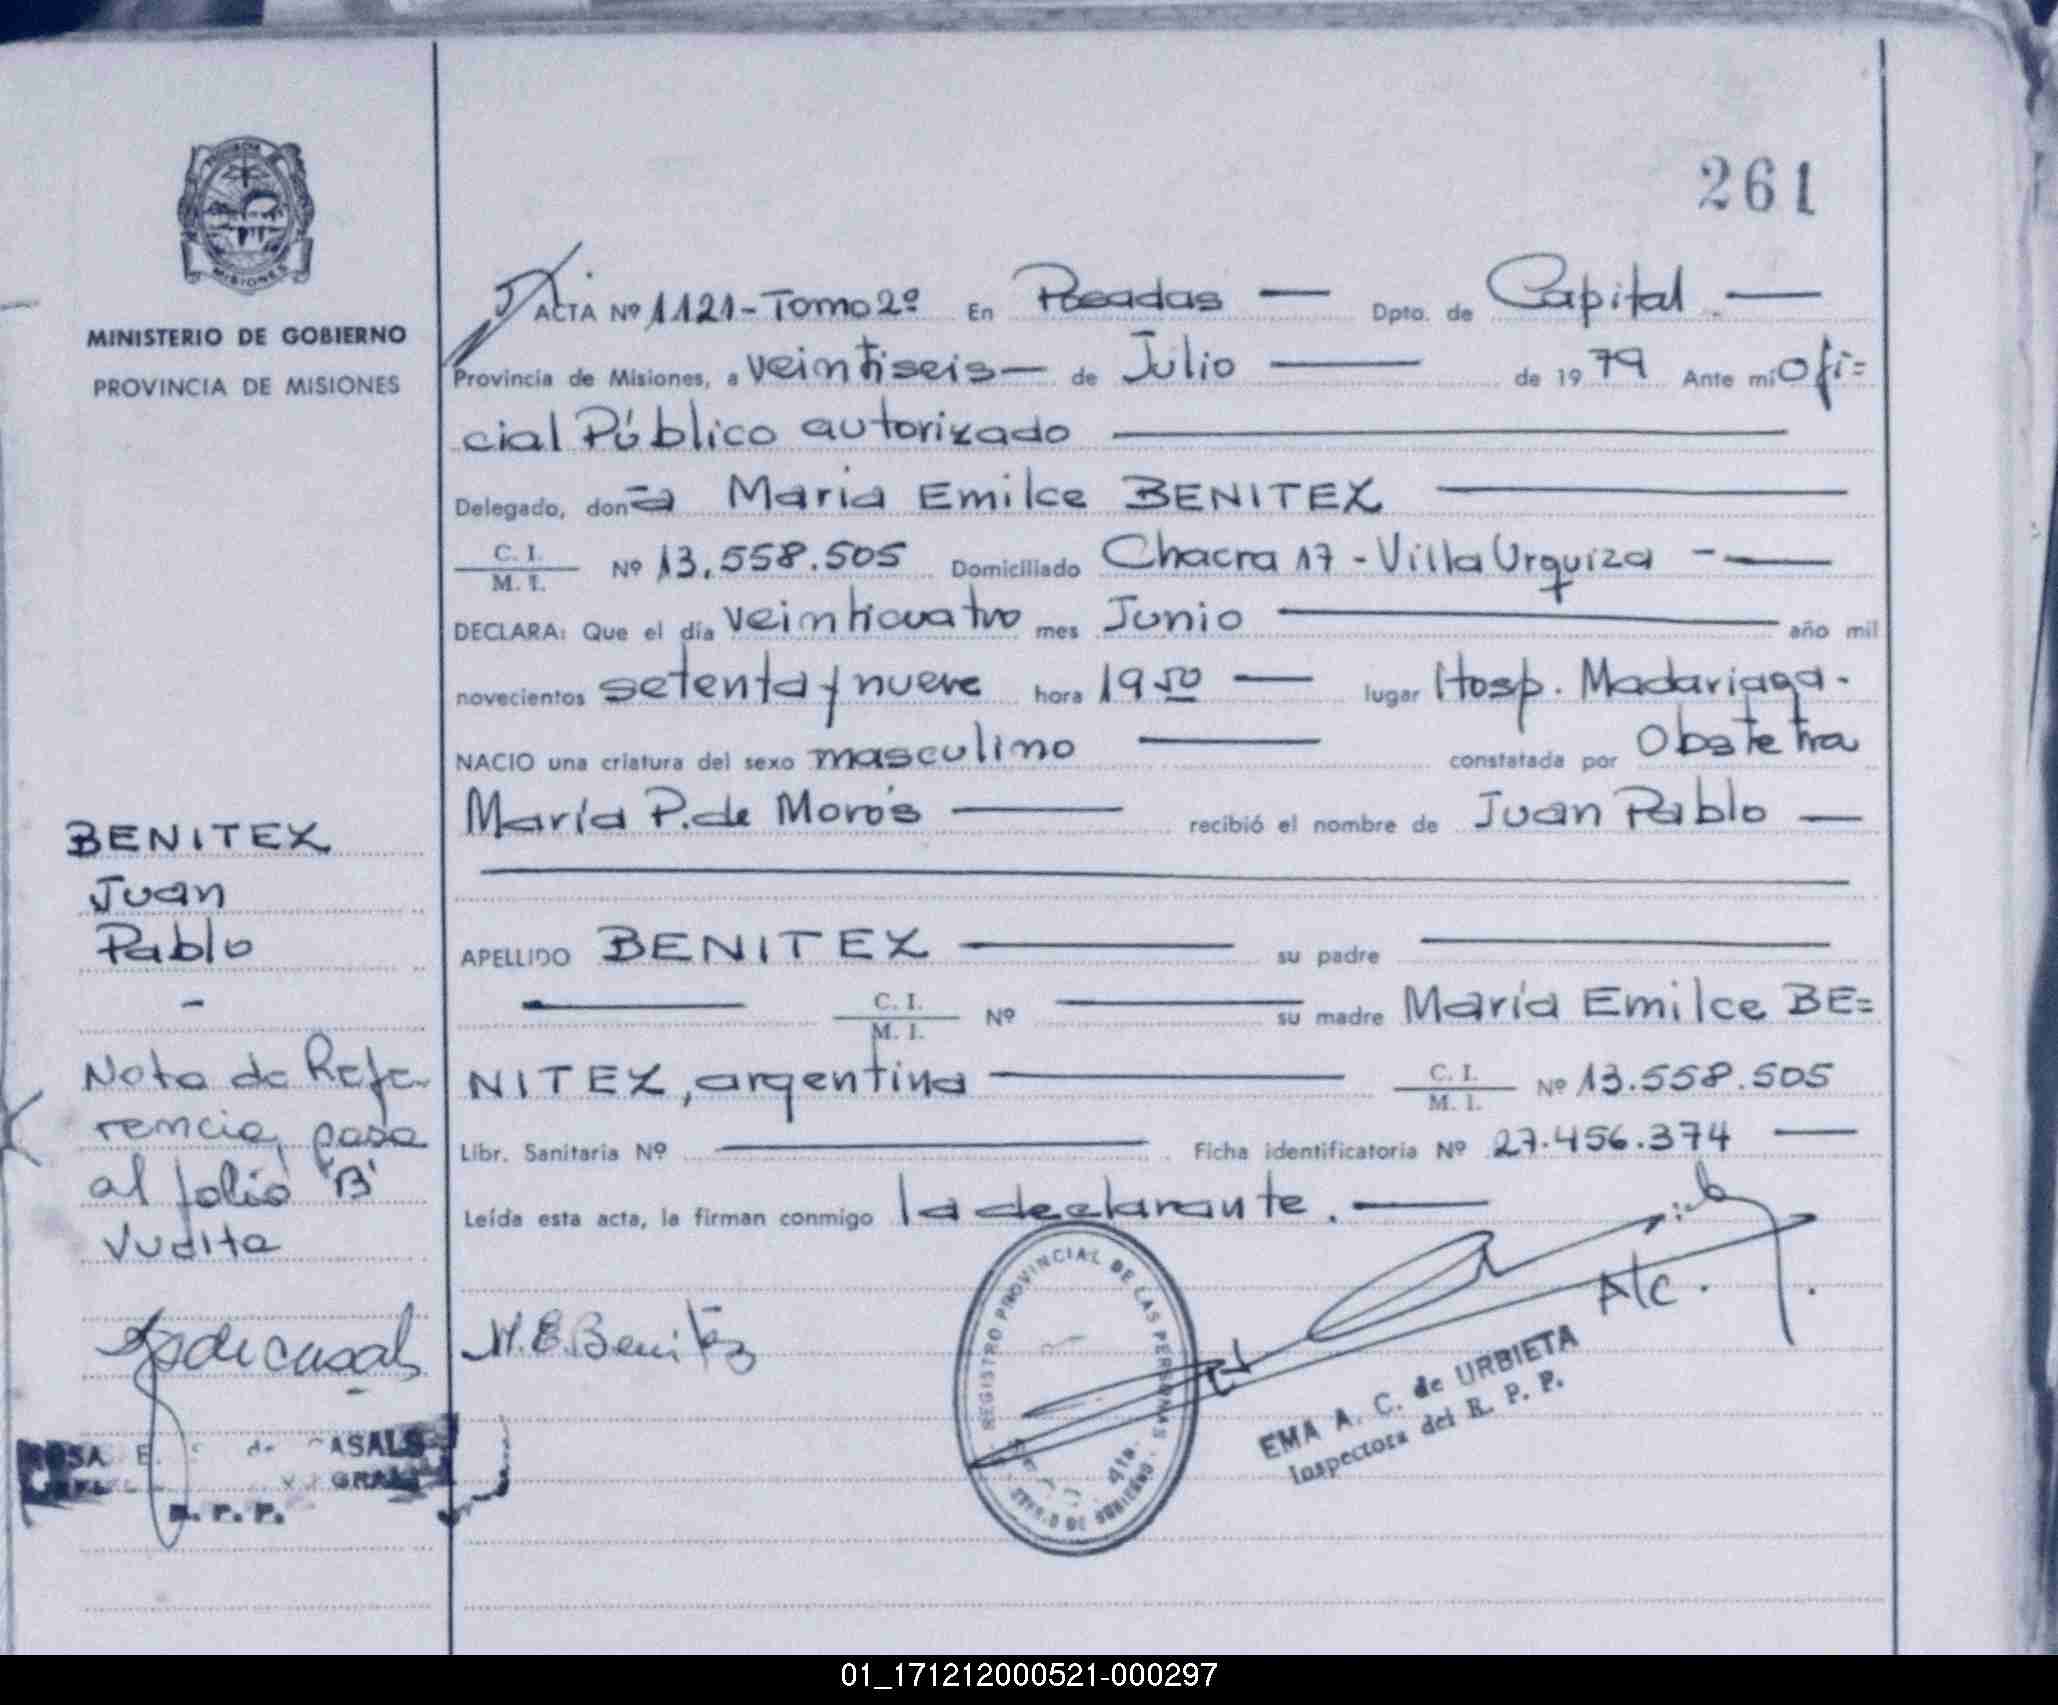 261
MISIONES
MINISTERIO DE GOBIERNO
PROVINCIA DE MISIONES
ACTA Nº 1121 - Tomo 2º En Posadas — Dpto. de Capital —
Provincia de Misiones, a veintiseis — de Julio — de 1979 Ante mi Ofi=
cial Público autorizado —
Delegado, doña Maria Emilce BENITEZ —
C. I.
M. I. Nº 13.558.505 Domiciliado Chacra 17 - Villa Urquiza - —
DECLARA: Que el día veinticuatro mes Junio — año mil
novecientos setenta y nueve hora 19 50 — lugar Hosp. Madariaga.
NACIO una criatura del sexo masculino — constatada por Obstetra
María P. de Moros — recibió el nombre de Juan Pablo —
APELLIDO BENITEZ — su padre —
— C. I.
M. I. Nº — su madre María Emilce BE=
NITEZ, argentina — C. I.
M. I. Nº 13.558.505
Libr. Sanitaria Nº — Ficha identificatoria Nº 27.456.374 —
Leída esta acta, la firman conmigo la declarante. —
BENITEZ
Juan
Pablo
-
Nota de Refe-
rencia, pasa
al folio "B"
Vudita
M. E. Benitez
A/C.
REGISTRO PROVINCIAL DE LAS PERSONAS
EMA A. C. de URBIETA
Inspectora del R. P. P.
ROSA E. de CASALS
GRAL
R. P. P.
01_171212000521-000297